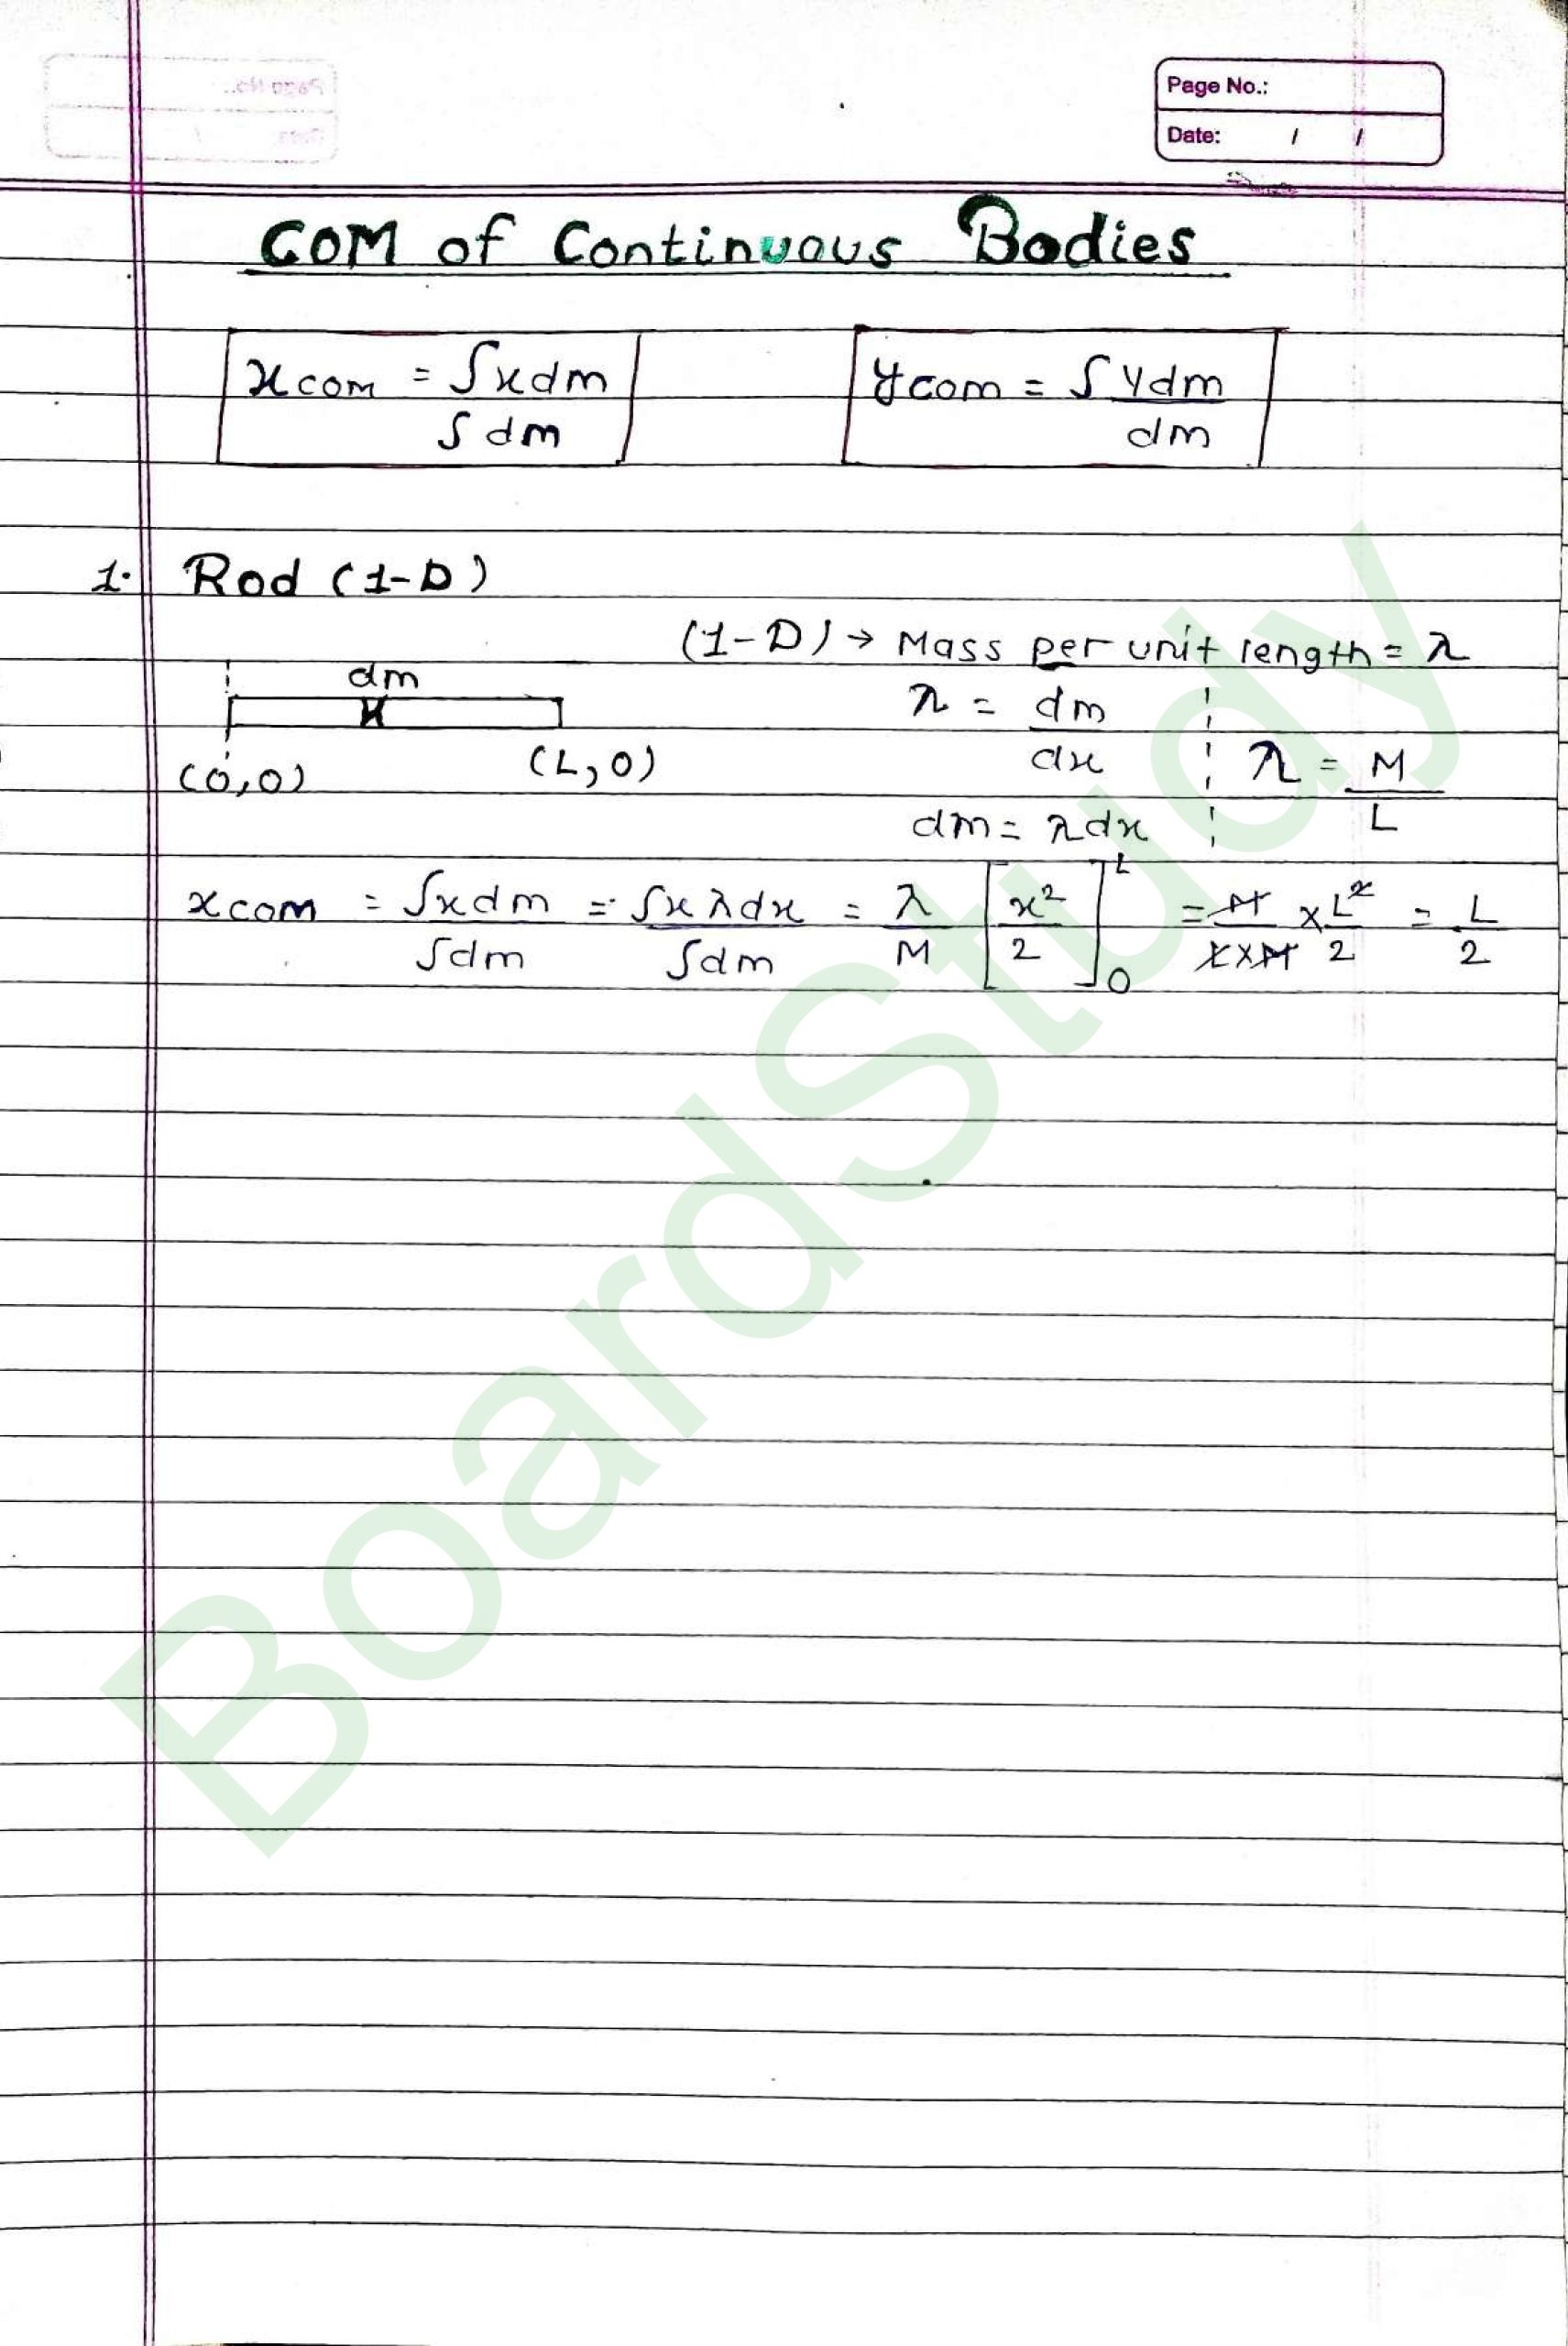 Page No.:
Date: / /
COM of Continuous Bodies
xcom = ∫xdm / ∫dm    ycom = ∫ ydm / dm
1. Rod (1-D)
(1-D) → Mass per unit length = λ
dm
λ = dm / dx    λ = M / L
(0,0)    (L,0)
dm = λdx
xcom = ∫xdm / ∫dm = ∫xλdx / ∫dm = λ / M [x² / 2]₀ᴸ = M / L×M × L² / 2 = L / 2
BoardStudy